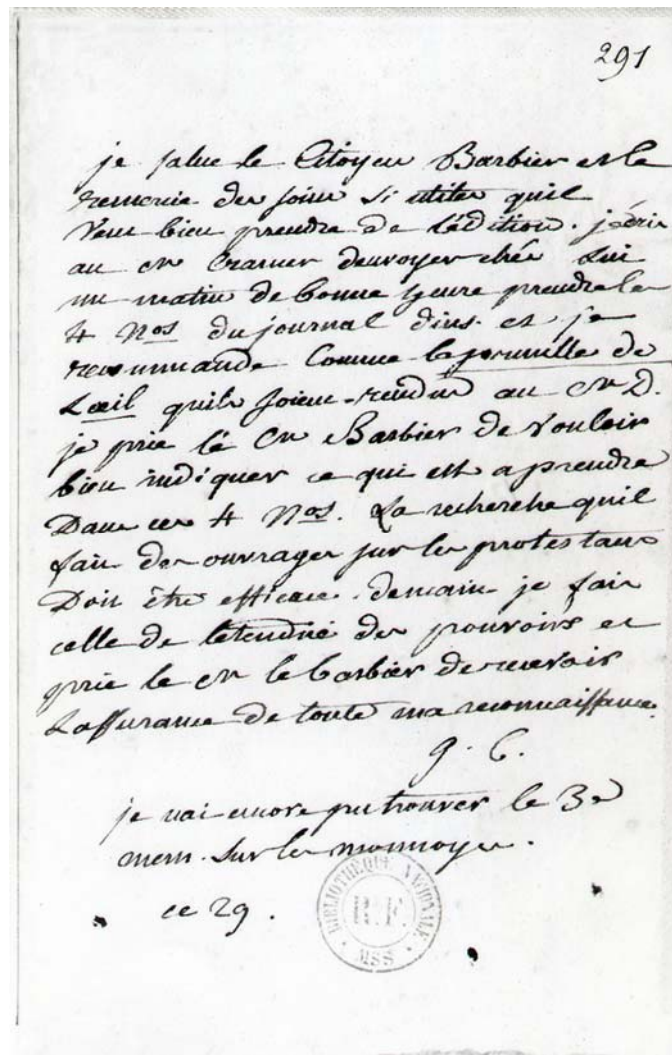 291
je salue le Citoyen Barbier et le
remercie des soins si utiles quil
veut bien prendre de l'édition. j'écris
au cn Cramer denvoyer chés lui
un matin de bonne heure prendre les
4 Nos du journal d'ins. et je
recommande Comme la prunelle de
Lœil quils soient rendus au cn D.
je prie le Cn Barbier de vouloir
bien indiquer ce qui est a prendre
Dans ces 4 Nos. La recherche quil
fait des ouvrages sur les protestans
Doit être efficace. demain je fais
celle de letendue des pouvoirs et
prie le cn le barbier de recevoir
Lassurance de toute ma reconnaissance.
g. C.
je nai encore pu trouver le 3e
mem. sur les monnoyes.
ce 29.
BIBLIOTHÈQUE NATIONALE
R.F.
MSS